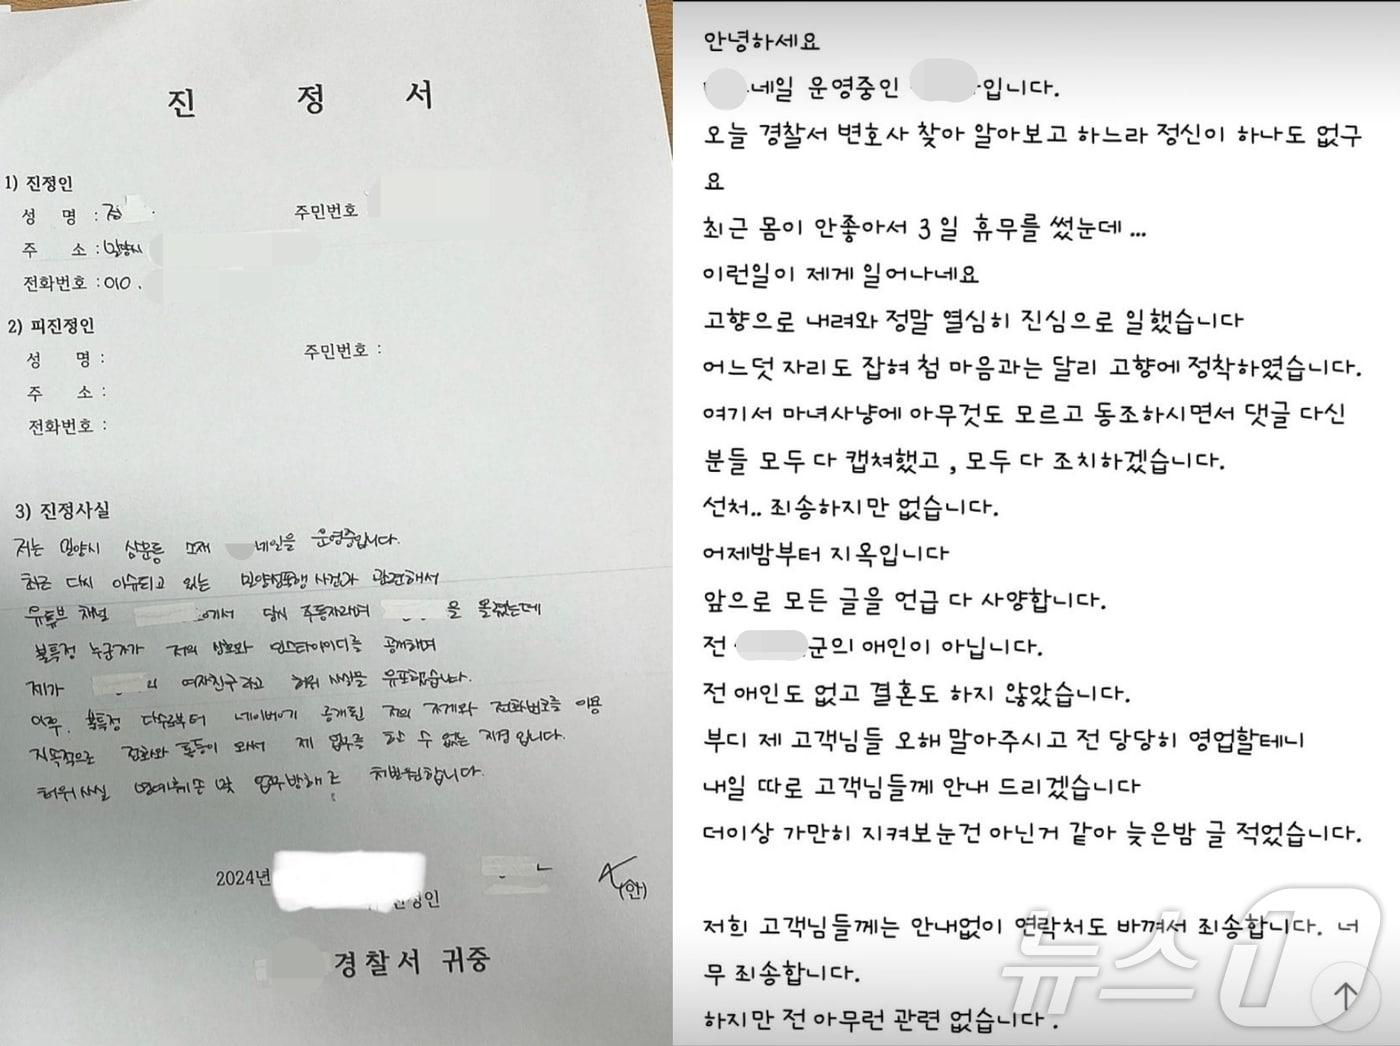 진 정 서
1) 진정인
성 명 : 정
주민번호
주 소 : 밀양시
전화번호 : 010.
2) 피진정인
성 명 :
주민번호 :
주 소 :
전화번호 :
3) 진정사실
저는 밀양시 삼문동 소재 네일을 운영중입니다.
최근 다시 이슈되고 있는 밀양성폭행 사건과 관련해서
유튜브 채널 에서 당시 주동자라며 을 올렸는데
불특정 누군가가 저의 상호와 인스타아이디를 공개하며
제가 의 여자친구라고 허위 사실을 유포했습니다.
이후, 불특정 다수로부터 네이버에 공개된 저의 가게와 전화번호를 이용
지속적으로 전화와 톡등이 와서 제 업무를 할 수 없는 지경입니다.
허위사실 명예훼손 및 업무방해로 처벌원합니다.
2024년
진정인
(인)
경찰서 귀중
안녕하세요
네일 운영중인 입니다.
오늘 경찰서 변호사 찾아 알아보고 하느라 정신이 하나도 없구
요
최근 몸이 안좋아서 3일 휴무를 썼눈데 ...
이런일이 제게 일어나네요
고향으로 내려와 정말 열심히 진심으로 일했습니다
어느덧 자리도 잡혀 첨 마음과는 달리 고향에 정착하였습니다.
여기서 마녀사냥에 아무것도 모르고 동조하시면서 댓글 다신
분들 모두 다 캡쳐했고 , 모두 다 조치하겠습니다.
선처.. 죄송하지만 없습니다.
어제밤부터 지옥입니다
앞으로 모든 글을 언급 다 사양합니다.
전 군의 애인이 아닙니다.
전 애인도 없고 결혼도 하지 않았습니다.
부디 제 고객님들 오해 말아주시고 전 당당히 영업할테니
내일 따로 고객님들께 안내 드리겠습니다
더이상 가만히 지켜보눈건 아닌거 같아 늦은밤 글 적었습니다.
저희 고객님들께는 안내없이 연락처도 바껴서 죄송합니다. 너
무 죄송합니다.
하지만 전 아무런 관련 없습니다 .
뉴스1